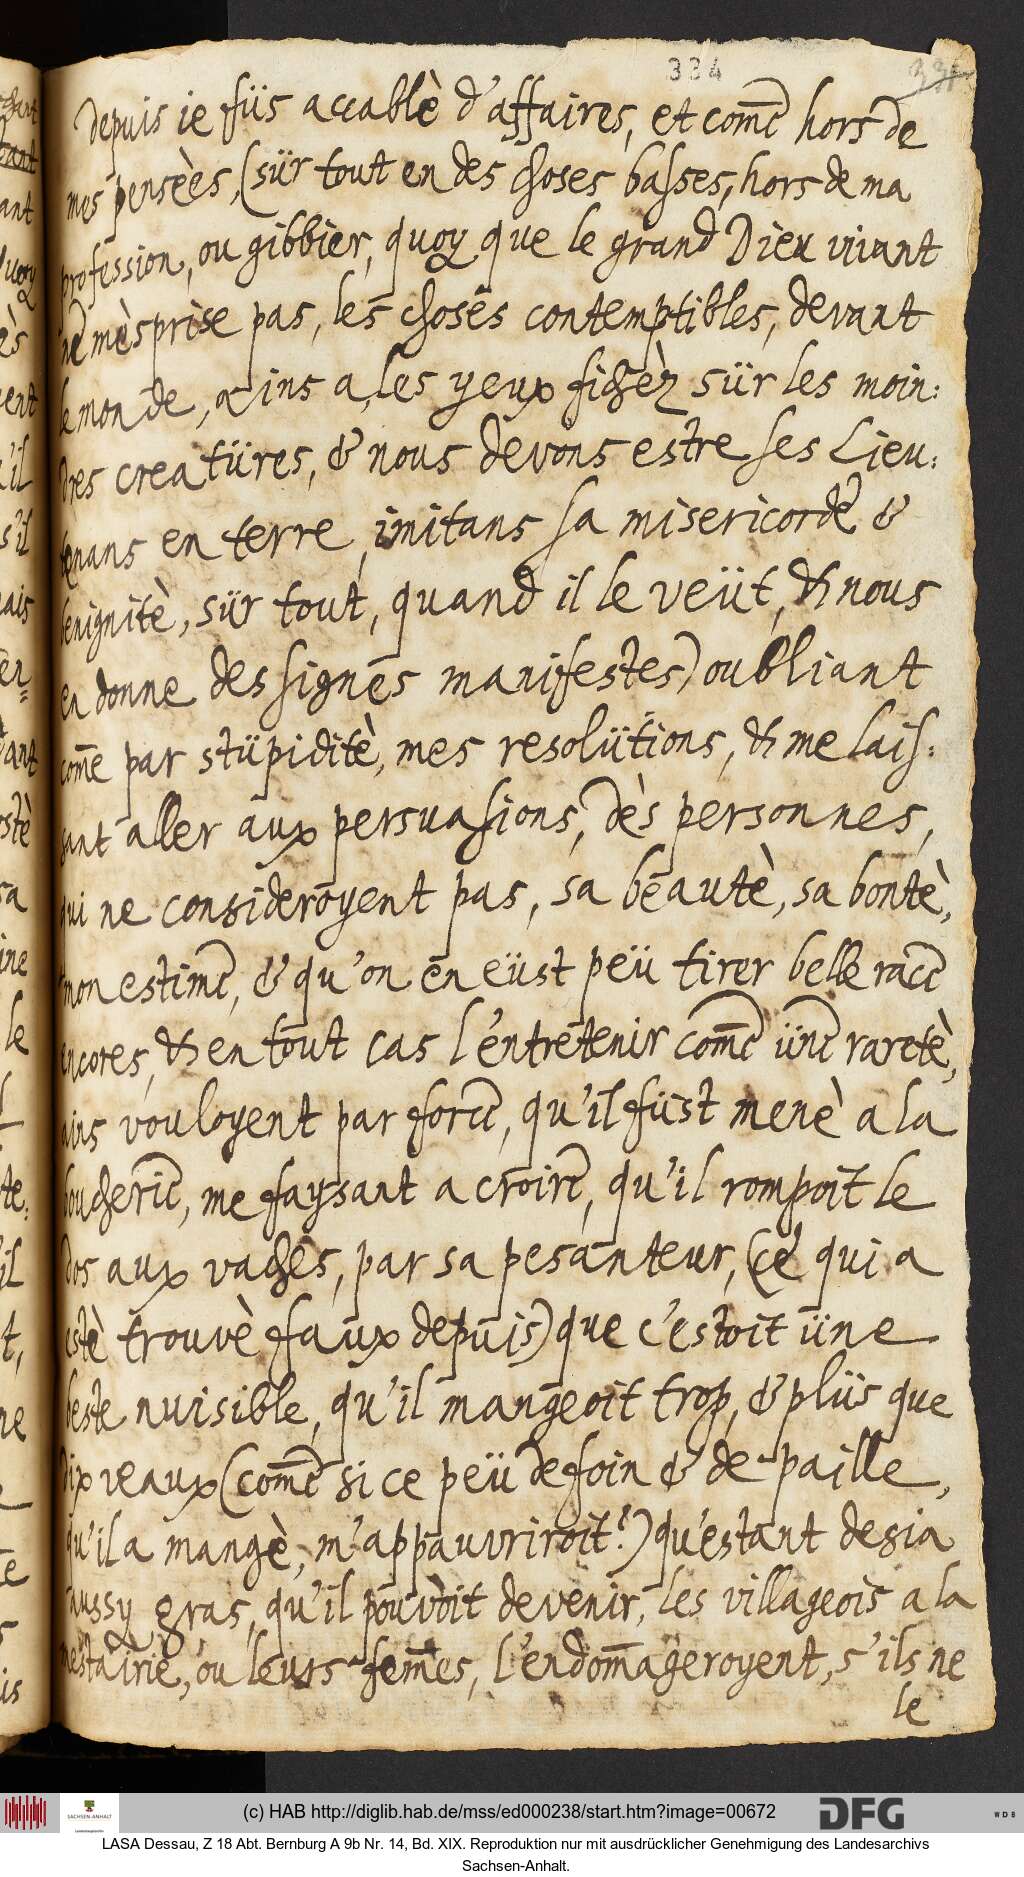 334
depuis ie füs accablè d'affaires, et com̃e hors de
mes pensèes, (sür tout en des choses basses, hors de ma
profession, ou gibbier, quoy que le grand Dieu vivant
ne mèsprise pas, les choses contemptibles, devant
le monde, ains a, les yeux fichèz sür les moin:
dres creatüres, & nous devons estre ses Lieu:
tenans en terre, imitans sa misericorde &
benignitè, sür tout, quand il le veüt, & nous
en donne des signes manifestes) oubliant
com̃e par stüpiditè, mes resolütions, & me lais:
sant aller aux persuasions, dès personnes,
qui ne consideroyent pas, sa beautè, sa bontè,
mon estime, & qu'on en eüst peü tirer belle race
encores, & en tout cas l'entretenir com̃e üne raretè,
ains vouloyent par force, qu'il füst menè a la
boucherie, me faysant a croire, qu'il rompoit le
dos aux vaches, par sa pesanteur, (ce qui a
estè trouvè faux depuis) que c'estoit üne
beste nuisible, qu'il mangeoit trop, & plüs que
dix veaux (com̃e si ce peü de foin & de paille,
qu'il a mangè, m'appauvriroit?) qu'estant desia
aussy gras, qu'il pouvoit devenir, les villageois a la
mestairie, ou leurs fem̃es, l'endom̃ageroyent, s'ils ne
le
(c) HAB http://diglib.hab.de/mss/ed000238/start.htm?image=00672
DFG
WDB
SACHSEN-ANHALT
LASA Dessau, Z 18 Abt. Bernburg A 9b Nr. 14, Bd. XIX. Reproduktion nur mit ausdrücklicher Genehmigung des Landesarchivs
Sachsen-Anhalt.